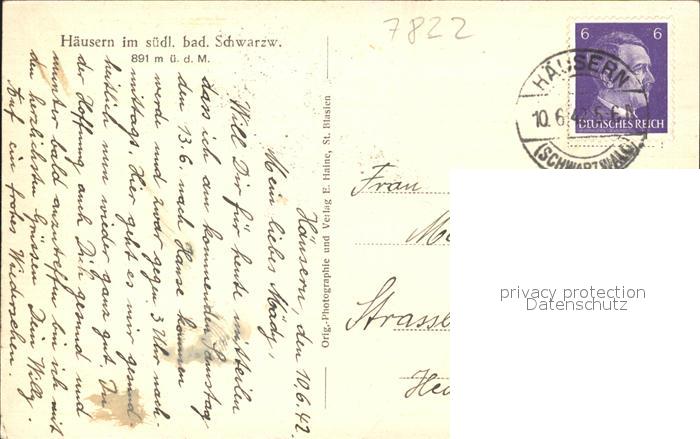 7822
Häusern im südl. bad. Schwarzw.
891 m ü. d. M.
6 6
DEUTSCHES REICH
HÄUSERN
10.6.42
(SCHWARZWALD)
Häusern, den 10.6.42.
Mein liebes Mädy,
Will Dir für heute mitteilen
dass ich am kommenden Samstag
den 13.6. nach Hause kommen
werde und zwar gegen 3 Uhr nach-
mittags. Hier geht es mir gesund-
heitlich nun wieder ganz gut. In
der Hoffnung auch Dich gesund und
munter bald anzutreffen bin ich mit
den herzlichsten Grüssen Dein Willy.
Auf ein frohes Wiedersehen.
Orig.-Photographie und Verlag E. Haine, St. Blasien
Frau
Strasse
privacy protection
Datenschutz